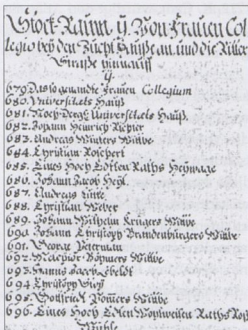 Stock-Raum. ÿ. Von Frauen Col
legio beÿ den Zucht Hauße an, und die Ritter
Straße hinauff
ÿ.
679. Das sogenandte Frauen Collegium
680. Universitaets Hauß
681. Noch dergl. Universitaets Hauß.
682. Johann Heinrich Richter
683. Andreas Winters Wittbe
684. Christian Reichert
685. Eines Hoch Edlen Raths Heÿwage
686. Johann Jacob Heÿl.
687. Andreas
688. Christian Weber
689. Johann Wilhelm Krügers Wittbe
690. Johann Christoph Brandenburgers Wittbe
691. George Petermann
692. Melchior Wittbe
693. Hanns Jacob
694. Christoph
695. Gottfried Wittbe
696. Eines Hoch Edlen Hochweisen Raths Roß
Mühle